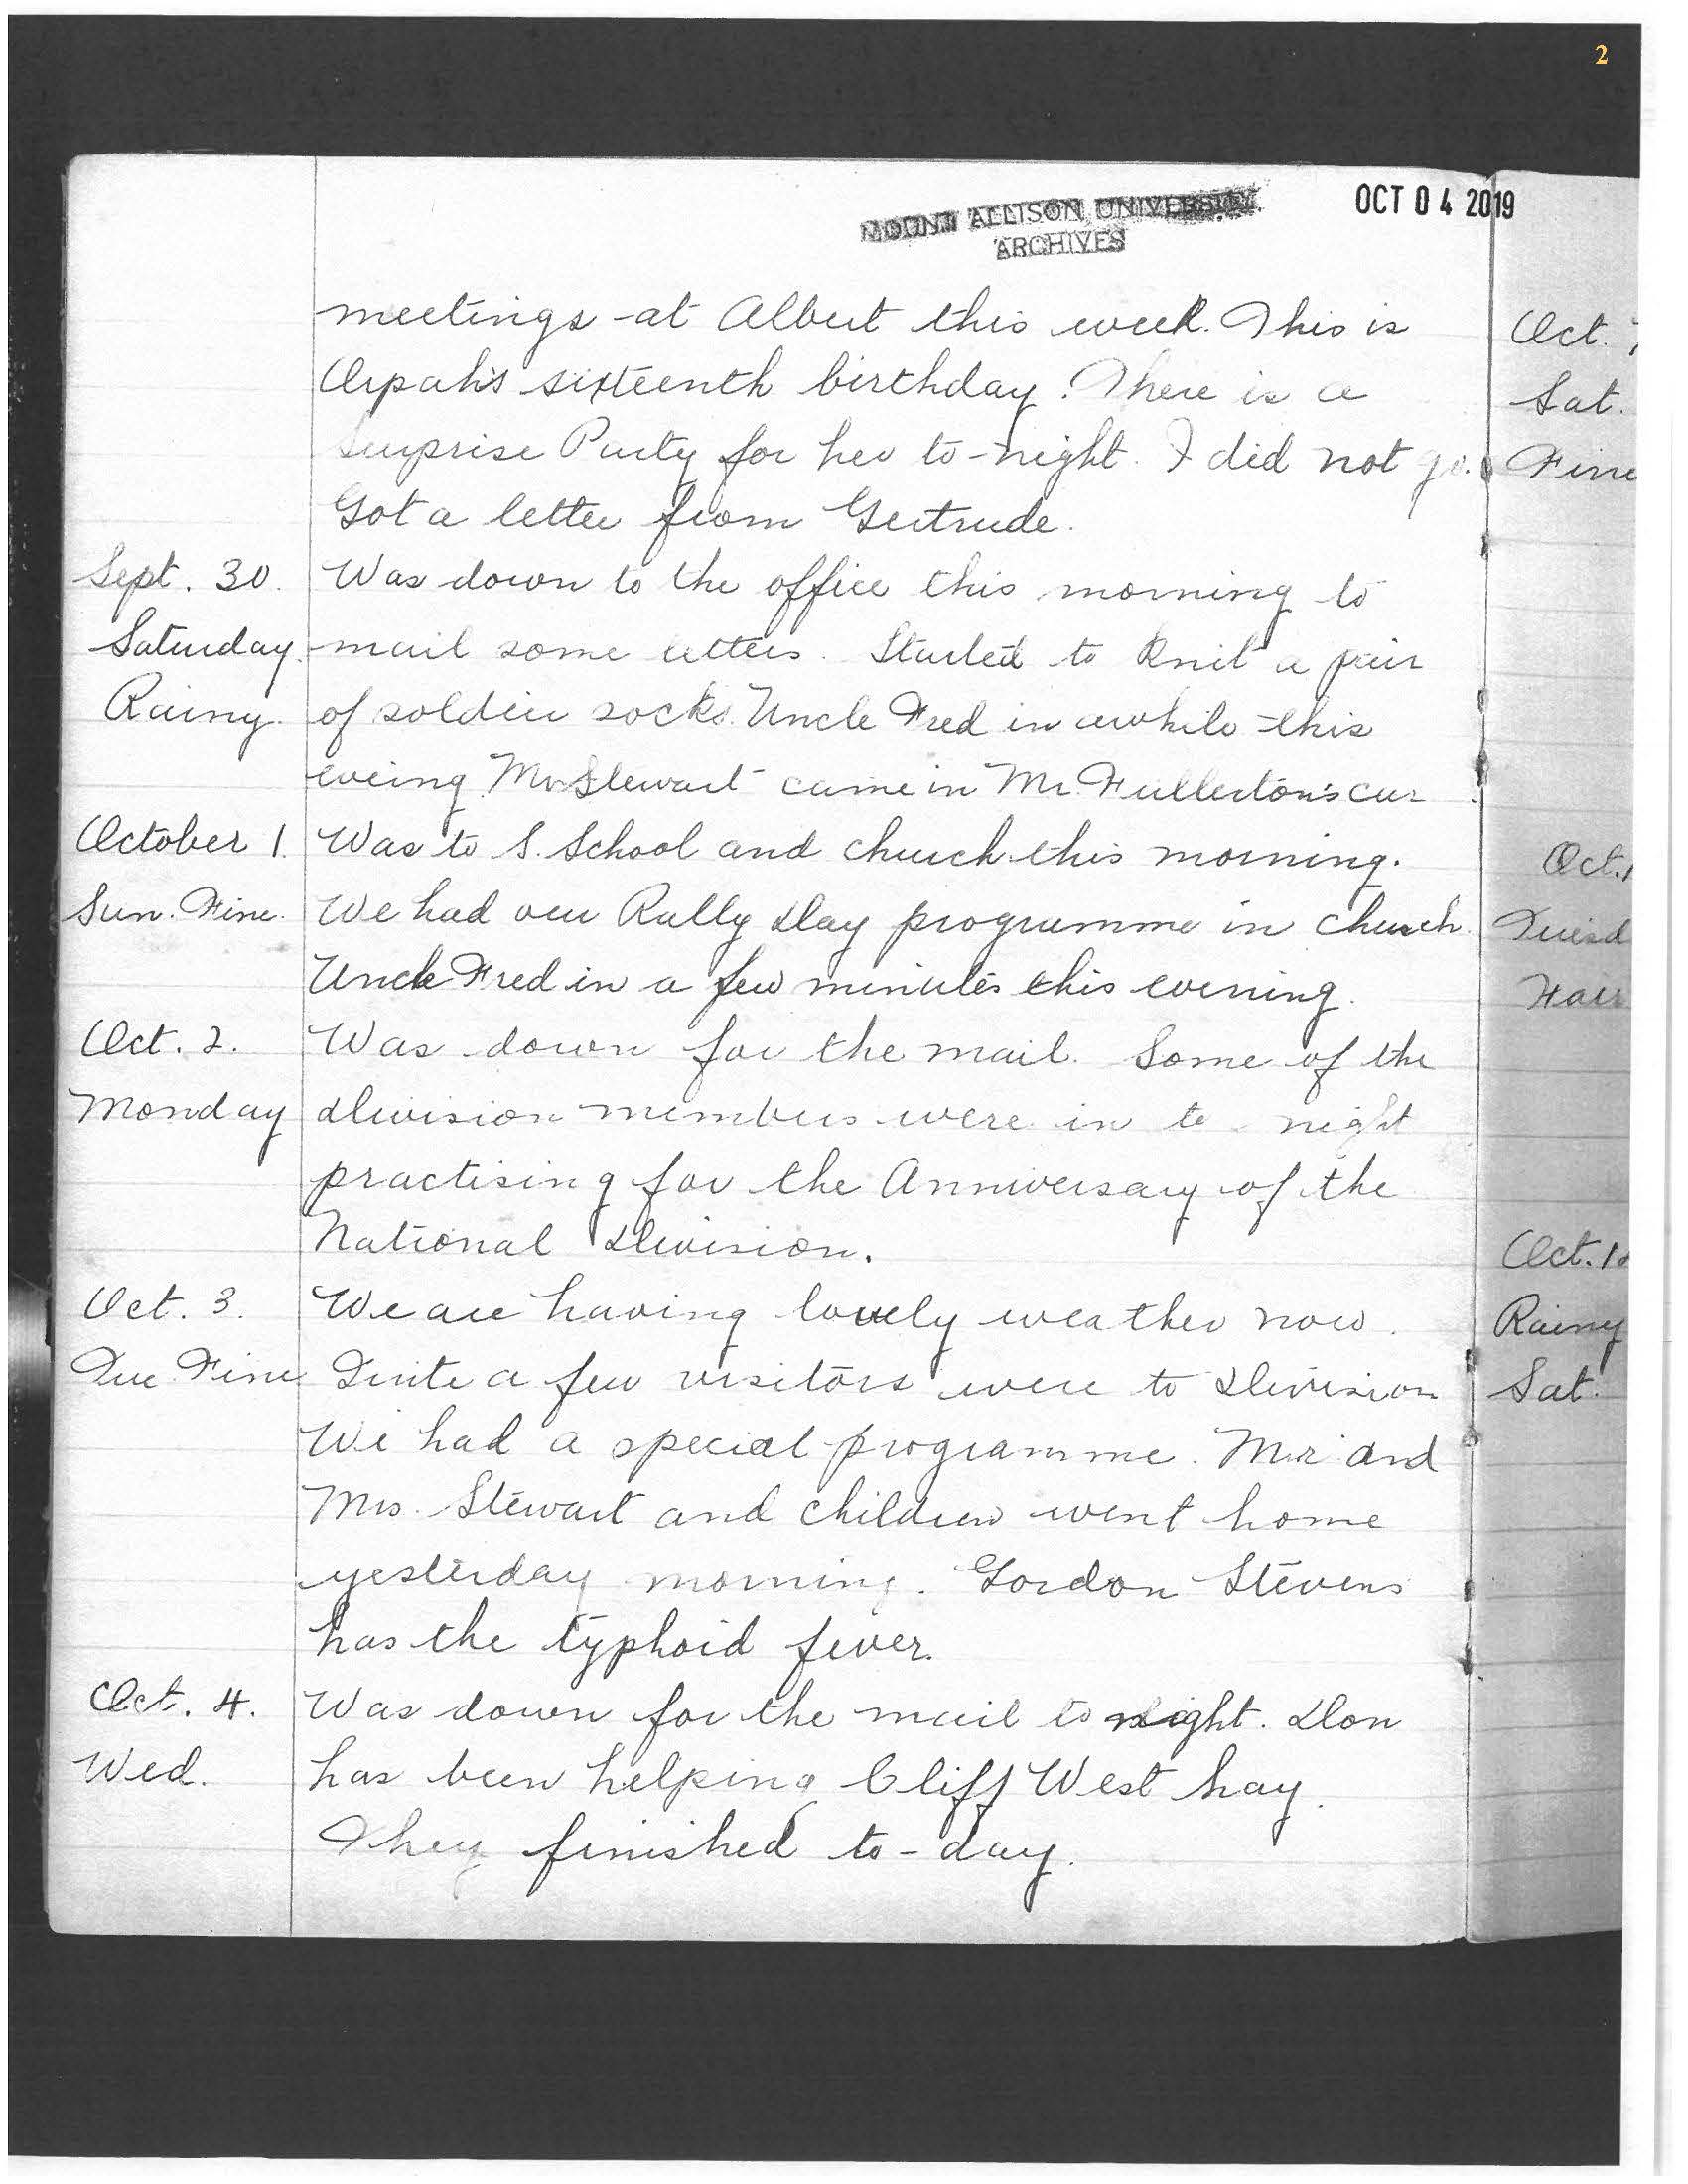 2
MOUNT ALLISON UNIVERSITY
ARCHIVES
OCT 04 2019
meetings at Albert this week. This is
Orpah's sixteenth birthday. There is a
Surprise Party for her to-night. I did not go.
Got a letter from Gertrude.
Sept. 30. Was down to the office this morning to
Saturday. mail some letters. Started to knit a pair
Rainy. of soldier socks. Uncle Fred in awhile this
eveing Mr Stewart came in Mr. Fullerton's car
October 1. Was to S. School and church this morning.
Sun. Fine. We had our Rally Day programme in church.
Uncle Fred in a few minutes this evening.
Oct. 2. Was down for the mail. Some of the
Monday Division members were in to night
practising for the Anniversary of the
National Division.
Oct. 3. We are having lovely weather now.
Tue. Fine Quite a few visitors were to Division
We had a special programme. Mr. and
Mrs. Stewart and children went home
yesterday morning. Gordon Stevens
has the typhoid fever.
Oct. 4. Was down for the mail to night. Don
Wed. has been helping Cliff West hay.
They finished to-day.
Oct. 7
Sat.
Fine
Oct.
Tuesd
Oct. 1
Rainy
Sat.